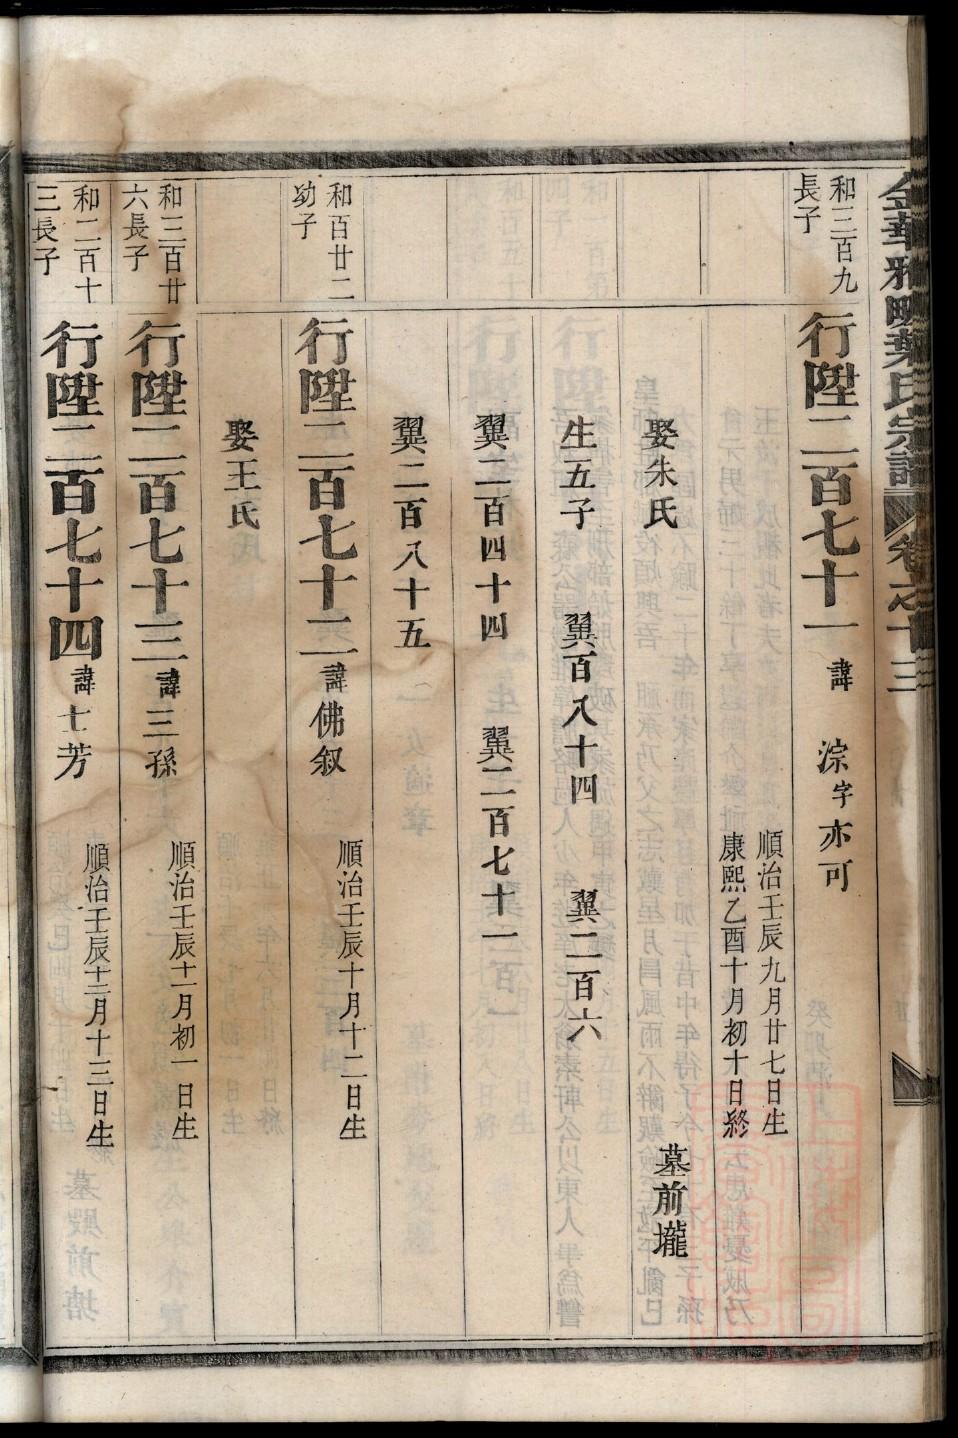 金華雅畈葉氏宗譜 卷之十三
和三百九
長子
行陞二百七十一 諱 淙字亦可
順治壬辰九月廿七日生
康熙乙酉十月初十日終
娶朱氏 墓前壠
生五子 翼百八十四 翼二百六
翼二百四十四 翼二百七十一
翼二百八十五
和百廿二
幼子
行陞二百七十二 諱佛叙 順治壬辰十月十二日生
娶王氏
和三百廿
六長子
行陞二百七十三 諱三孫 順治壬辰十一月初一日生
和二百十
三長子
行陞二百七十四 諱士芳 順治壬辰十二月十三日生